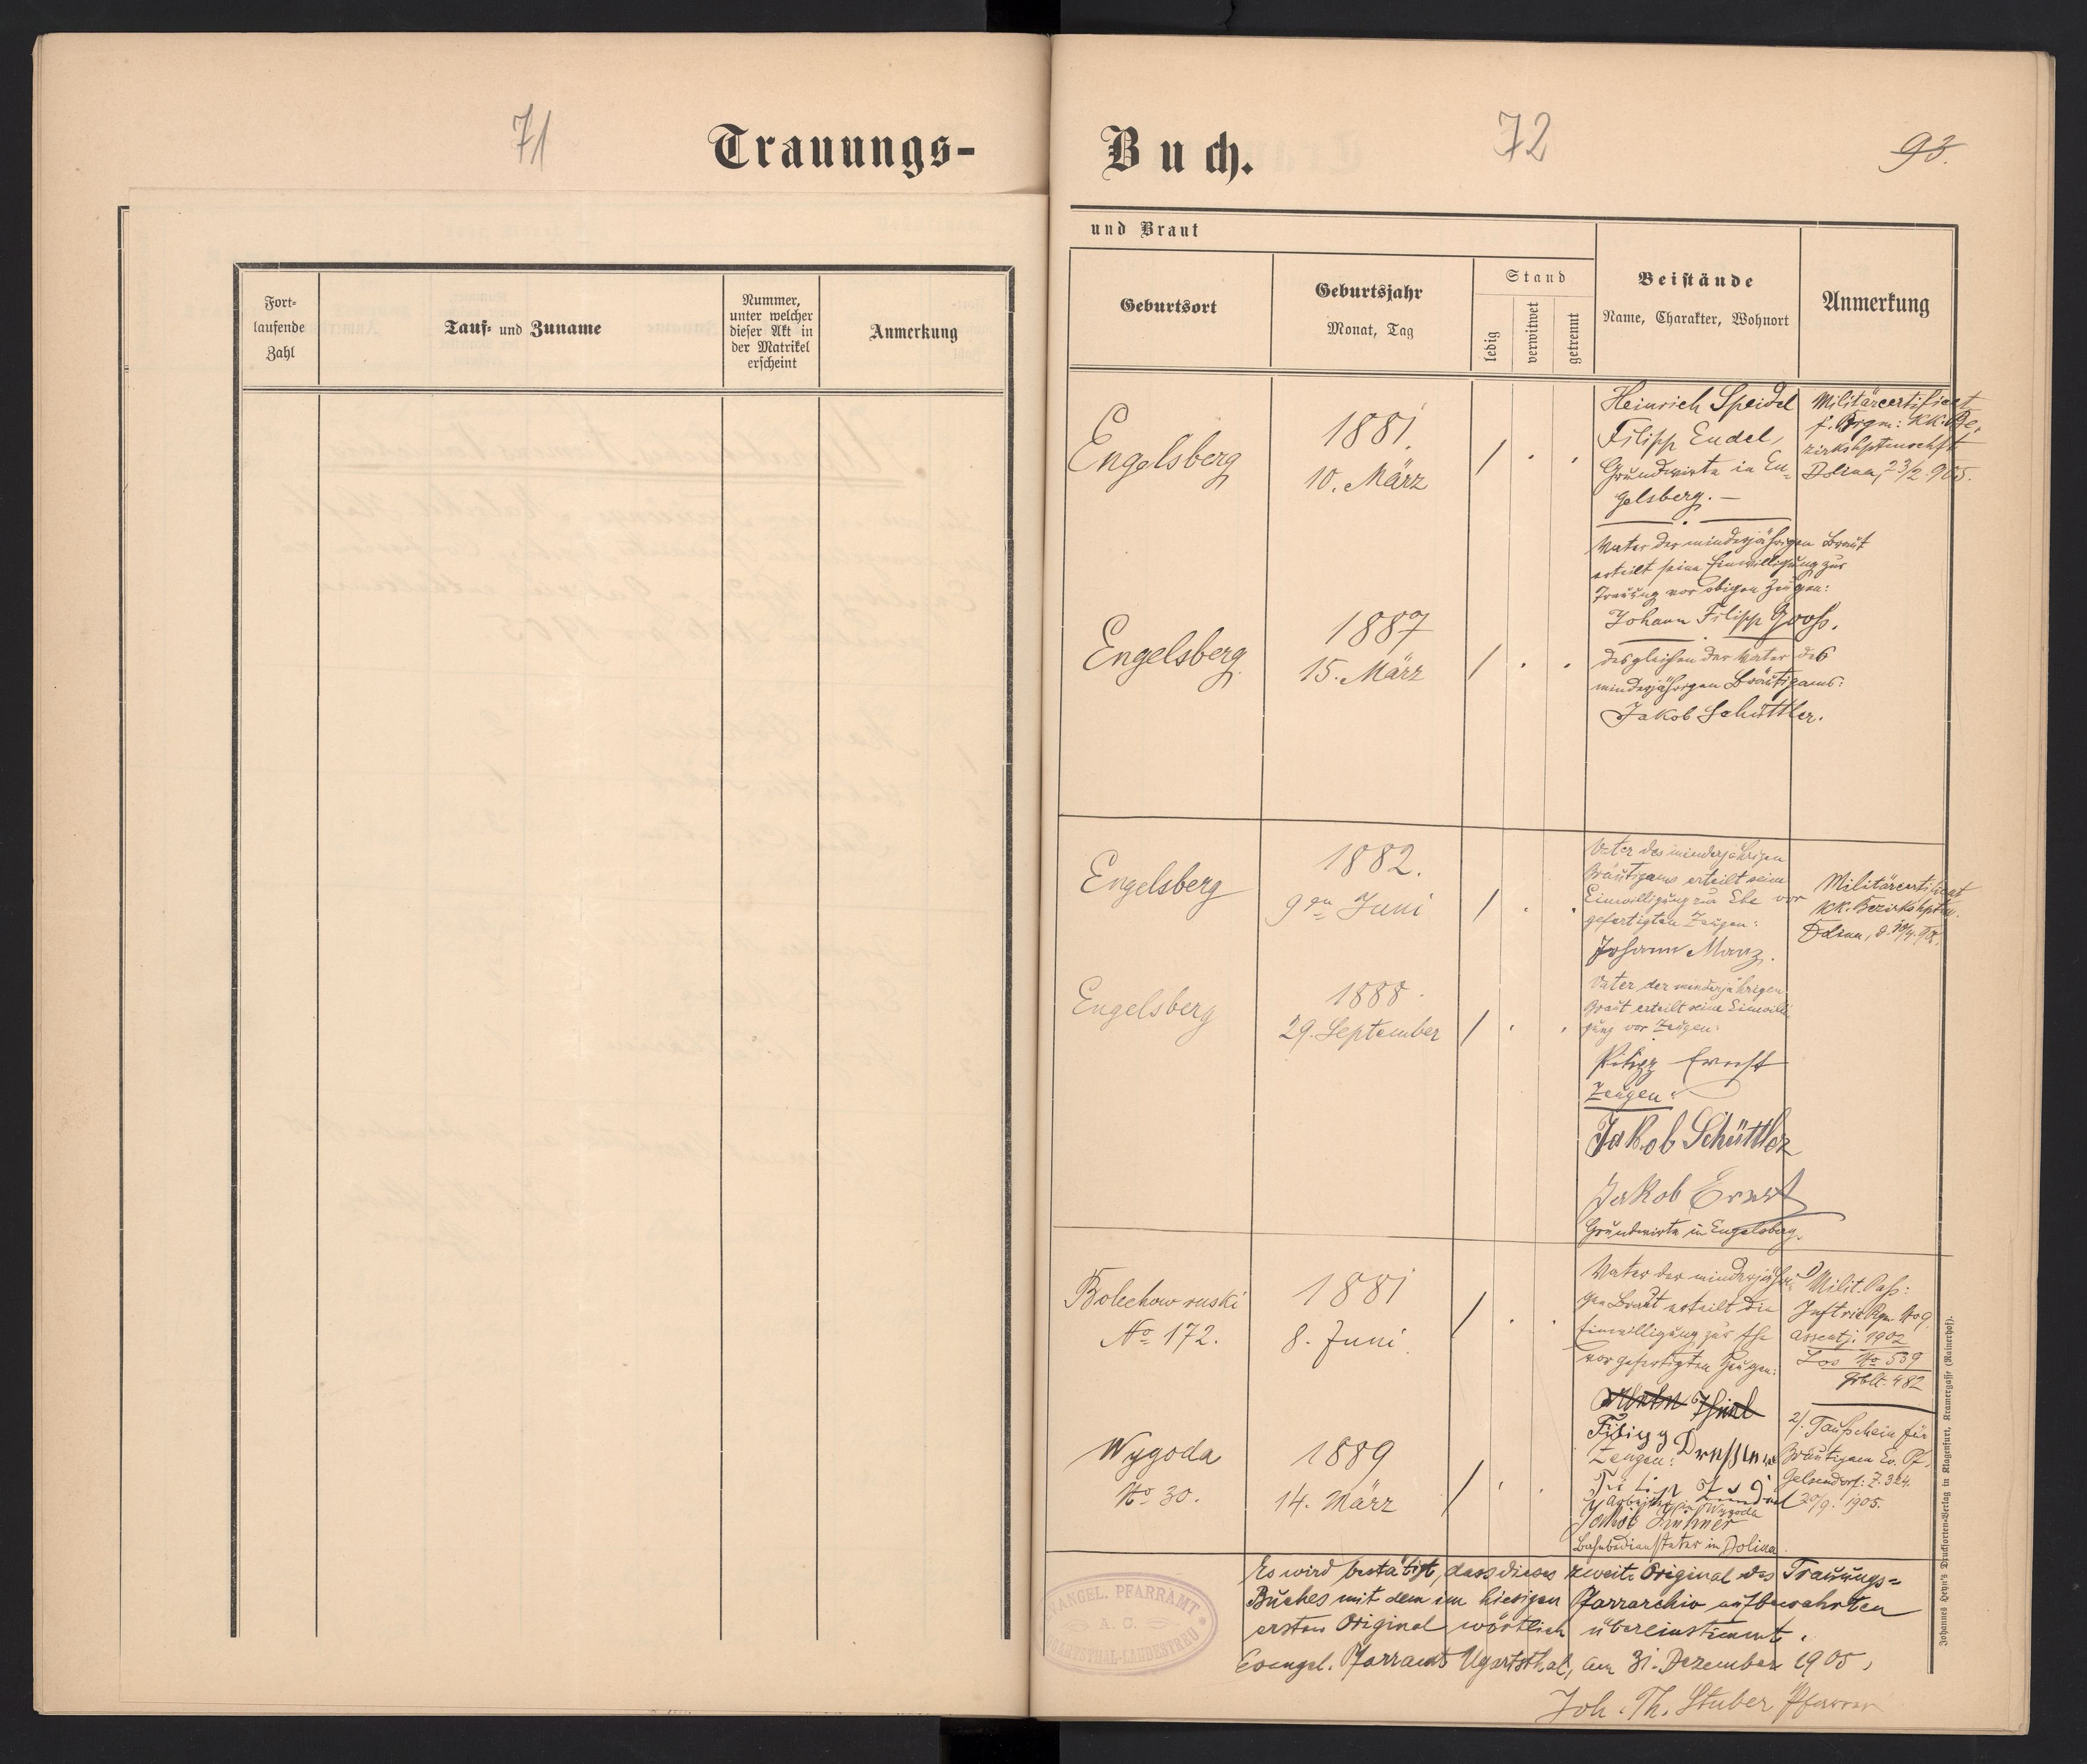 71
Trauungs-
Fort-
laufende
Zahl
Tauf- und Zuname
Nummer,
unter welcher
dieser Akt in
der Matrikel
erscheint
Anmerkung
Buch.
72
93.
und Braut
Geburtsort
Geburtsjahr
Monat, Tag
Stand
ledig
verwitwet
getrennt
Beistände
Name, Charakter, Wohnort
Anmerkung
Engelsberg
1881.
10. März
Heinrich Speidel
Filipp Endel,
Grundwirte in En-
gelsberg. —
Militärcertificat
k.k. Be-
zirkshptmschft
Dolina, 23/2 905.
Vater der minderjährigen Braut
erteilt seine Einwilligung zur
Trauung vor obigen Zeugen:
Johann Filipp Gross.
Engelsberg
1887
15. März
desgleichen der Vater des
minderjährigen Bräutigams:
Jakob Schüttler.
Engelsberg
1882.
9ten Juni
Vater des minderjährigen
Bräutigams erteilt seine
Einwilligung zur Ehe vor
gefertigten Zeugen:
Johann Manz.
Militärcertificat
kk. Bezirkshptm.
Dolina
Engelsberg
1888.
29. September
Vater der minderjährigen
Braut erteilt seine Einwilli-
gung vor Zeugen:
Zeugen:
Jakob Schüttler
Jakob Ernst
Grundwirte in Engelsberg.
Bolechow ruski
No 172.
1881
8. Juni
Vater der minderjähri-
gen Braut erteilt die
Einwilligung zur Ehe
vor gefertigten Zeugen:
1) Milit. Paß:
Inftrie Rgm. No 9.
Assentj. 1902
Los No 539
Grblt. 482
Wygoda
No 30.
1889
14. März
Zeugen:
Jakob
Bahnbediensteter in Dolina.
2/. Taufschein für
Bräutigam Ev. Pf.
Gelsendorf: Z. 324.
20/9. 1905.
Es wird bestätigt, dass dieses zweite Original des Trauungs-
Buches mit dem im hiesigen Pfarrarchiv aufbewahrten
ersten Original wörtlich übereinstimmt.
Evangel. Pfarramt Ugartsthal, am 31. Dezember 1905,
Joh. Th. Stuber Pfarrer
EVANGEL. PFARRAMT
A. C.
UGARTSTHAL-LANDESTREU
Johannes Heyn's Drucksorten-Verlag in Klagenfurt, Kramergasse (Rainerhof).